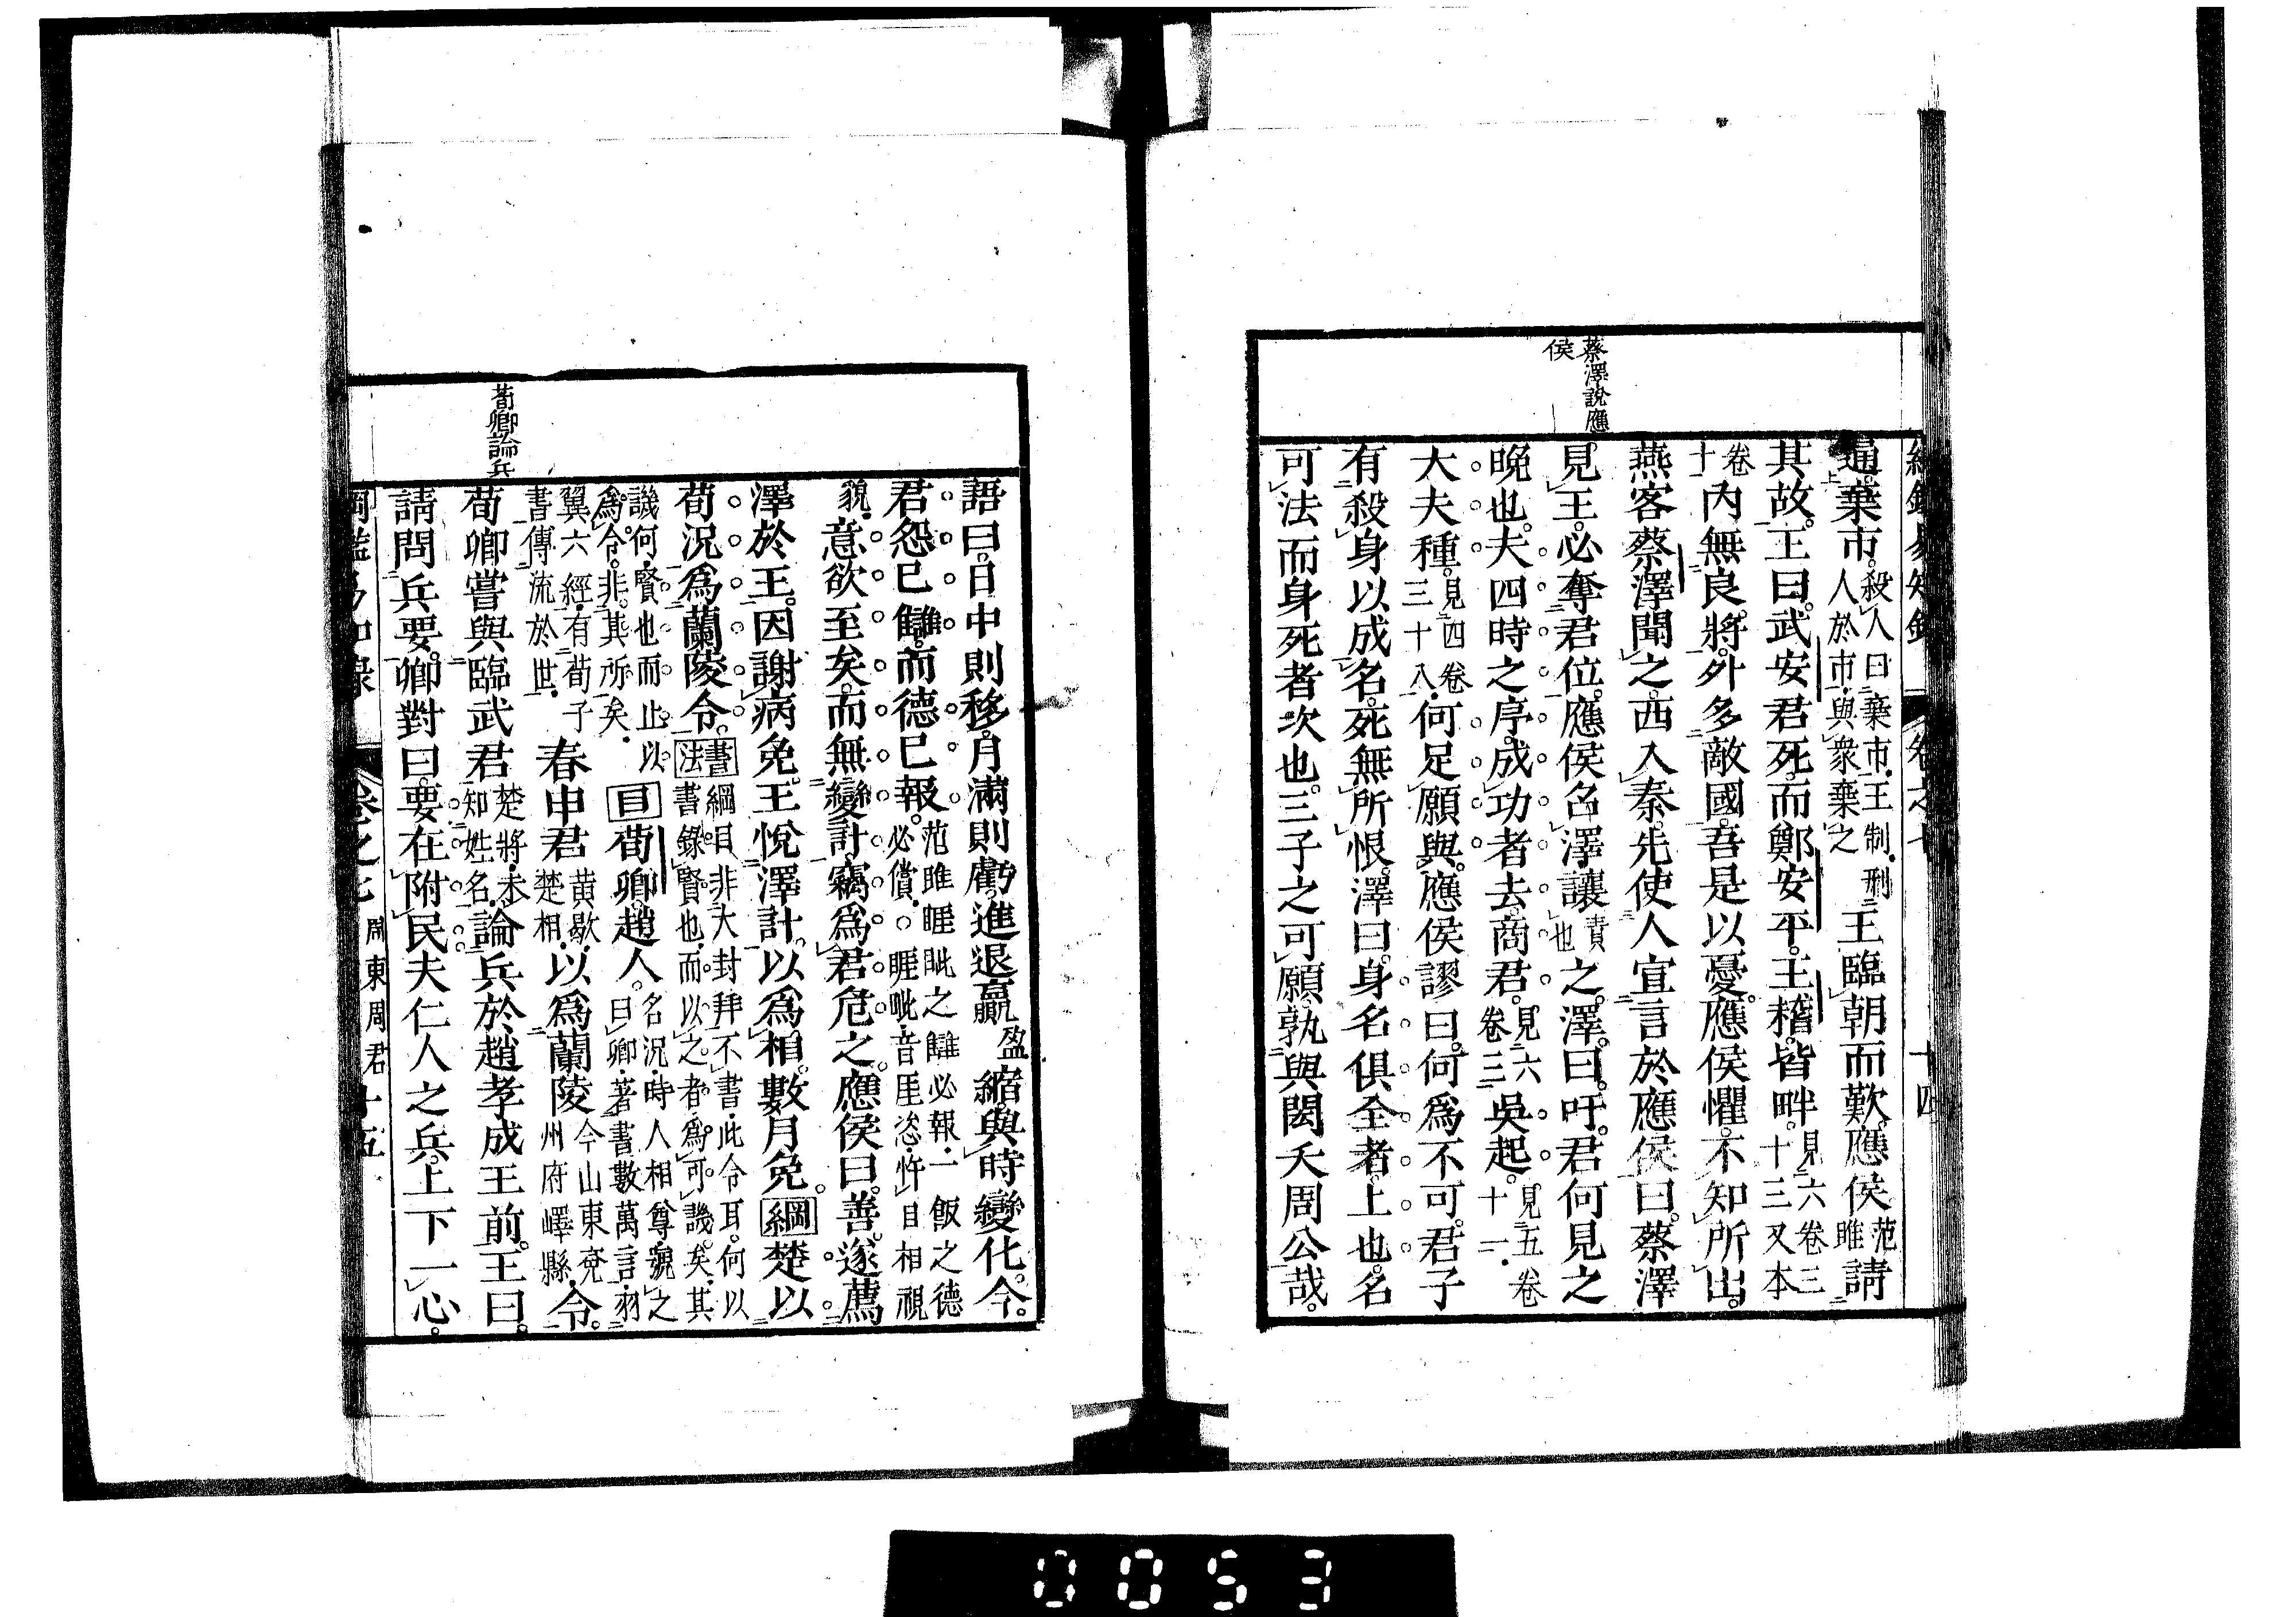 蔡澤說應
侯
通棄市。殺人曰棄市。王制。刑人於市。與衆棄之王臨朝而歎。應侯范雎請
其故。王曰。武安君死。而鄭安平。王稽。皆畔。見六卷三十三又本
卷十內無良將。外多敵國。吾是以憂。應侯懼。不知所出。
燕客蔡澤聞之。西入秦。先使人宣言於應侯曰。蔡澤
見王。必奪君位。應侯召澤讓責也之。澤曰。吁。君何見之
晚也。夫四時之序。成功者去。商君。見六卷三吳起。見五卷十一。
大夫種。見四卷三十八。何足願與。應侯謬曰。何爲不可。君子
有殺身以成名。死無所恨。澤曰。身名俱全者。上也。名
可法而身死者次也。三子之可願。孰與閎夭周公哉。
荀卿論兵
語曰。日中則移。月滿則虧。進退贏盈縮。與時變化。今。
君怨已讎。而德已報。范雎睚眦之讎必報。一飯之德必償。○睚眦。音厓恣。忤目相視
貌。意欲至矣。而無變計。竊爲君危之。應侯曰。善。遂薦
澤於王。因謝病免。王悅澤計。以爲相。數月免。綱楚以
荀況爲蘭陵令。書法綱目非大封拜不書。此令耳。何以書。錄賢也。而以之者。爲可譏矣。其
譏何。賢也而止以爲令。非其所矣。目荀卿。趙人。名況。時人相尊。號之曰卿。著書數萬言。羽
翼六經。有荀子書傳流於世。春申君黃歇。楚相。以爲蘭陵今山東兗州府嶧縣。令。
荀卿嘗與臨武君楚將。未知姓名。論兵於趙孝成王前。王曰。
請問兵要。卿對曰。要在附民。夫仁人之兵。上下一心。
卷之七 周東周君 十五